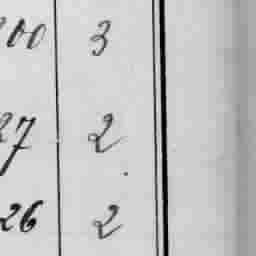 00 3
27 2
26 2